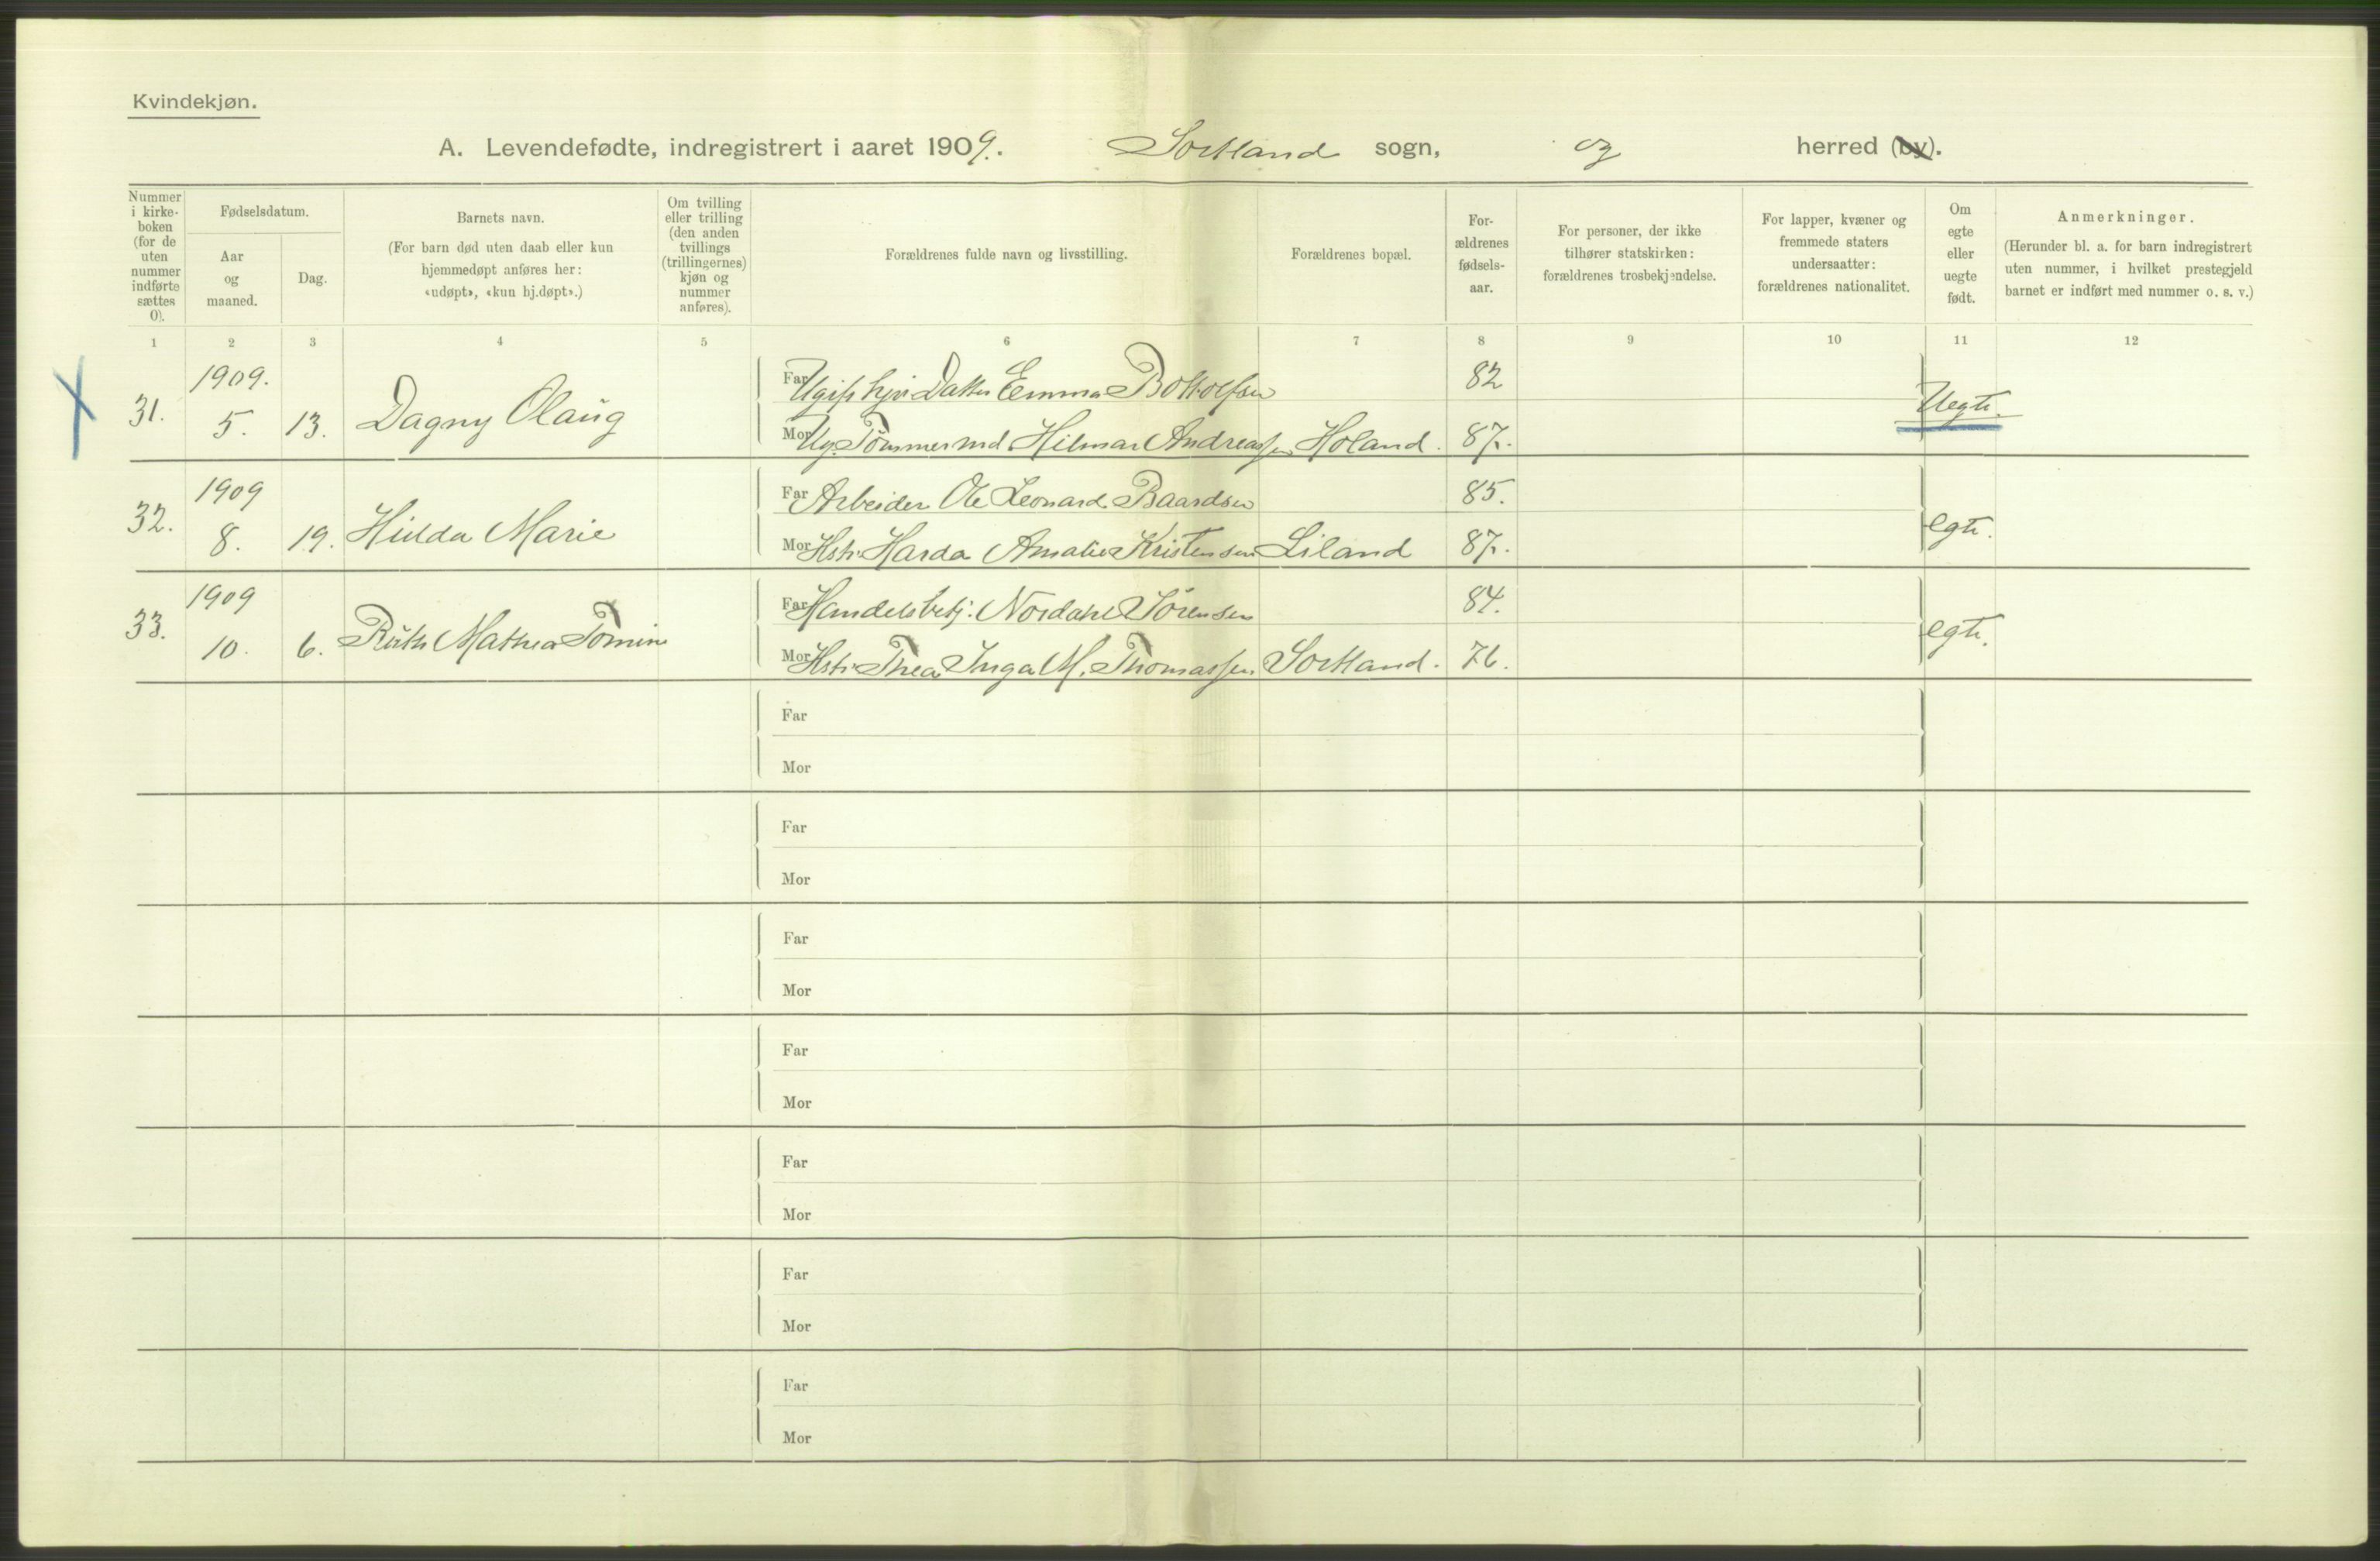 Kvindekjøn.
A. Levendefødte, indregistrert i aaret 1909. Sortland sogn, og herred (by).
Nummer i kirke-boken (for de uten nummer indførte sættes 0).
Fødselsdatum.
Aar og maaned.
Dag.
Barnets navn.
(For barn død uten daab eller kun hjemmedøpt anføres her: «udøpt», «kun hj.døpt».)
Om tvilling eller trilling (den anden tvillings (trillingernes) kjøn og nummer anføres).
Forældrenes fulde navn og livsstilling.
Forældrenes bopæl.
For-ældrenes fødsels-aar.
For personer, der ikke tilhører statskirken: forældrenes trosbekjendelse.
For lapper, kvæner og fremmede staters undersaatter: forældrenes nationalitet.
Om egte eller uegte født.
Anmerkninger.
(Herunder bl. a. for barn indregistrert uten nummer, i hvilket prestegjeld barnet er indført med nummer o. s. v.)
1 2 3 4 5 6 7 8 9 10 11 12
1909. Far Ugift Datter Emma Bottolfsen 82
31. 5. 13. Dagny Olaug Uegte.
Mor Ug. Tømmermd Hilmar Andreassen Holand. 87.
1909 Far Arbeider Ole Leonard Baardsen 85.
32. 8. 19. Hilda Marie egte.
Mor Hstr. Harda Amalie Kristensen Liland 87.
1909 Far Handelsbetj. Nordahl Sørensen 84.
33. 10. 6. Ruth Mathea Tomine egte.
Mor Hstr. Thea Inga M. Thomassen Sortland. 76.
Far
Mor
Far
Mor
Far
Mor
Far
Mor
Far
Mor
Far
Mor
Far
Mor